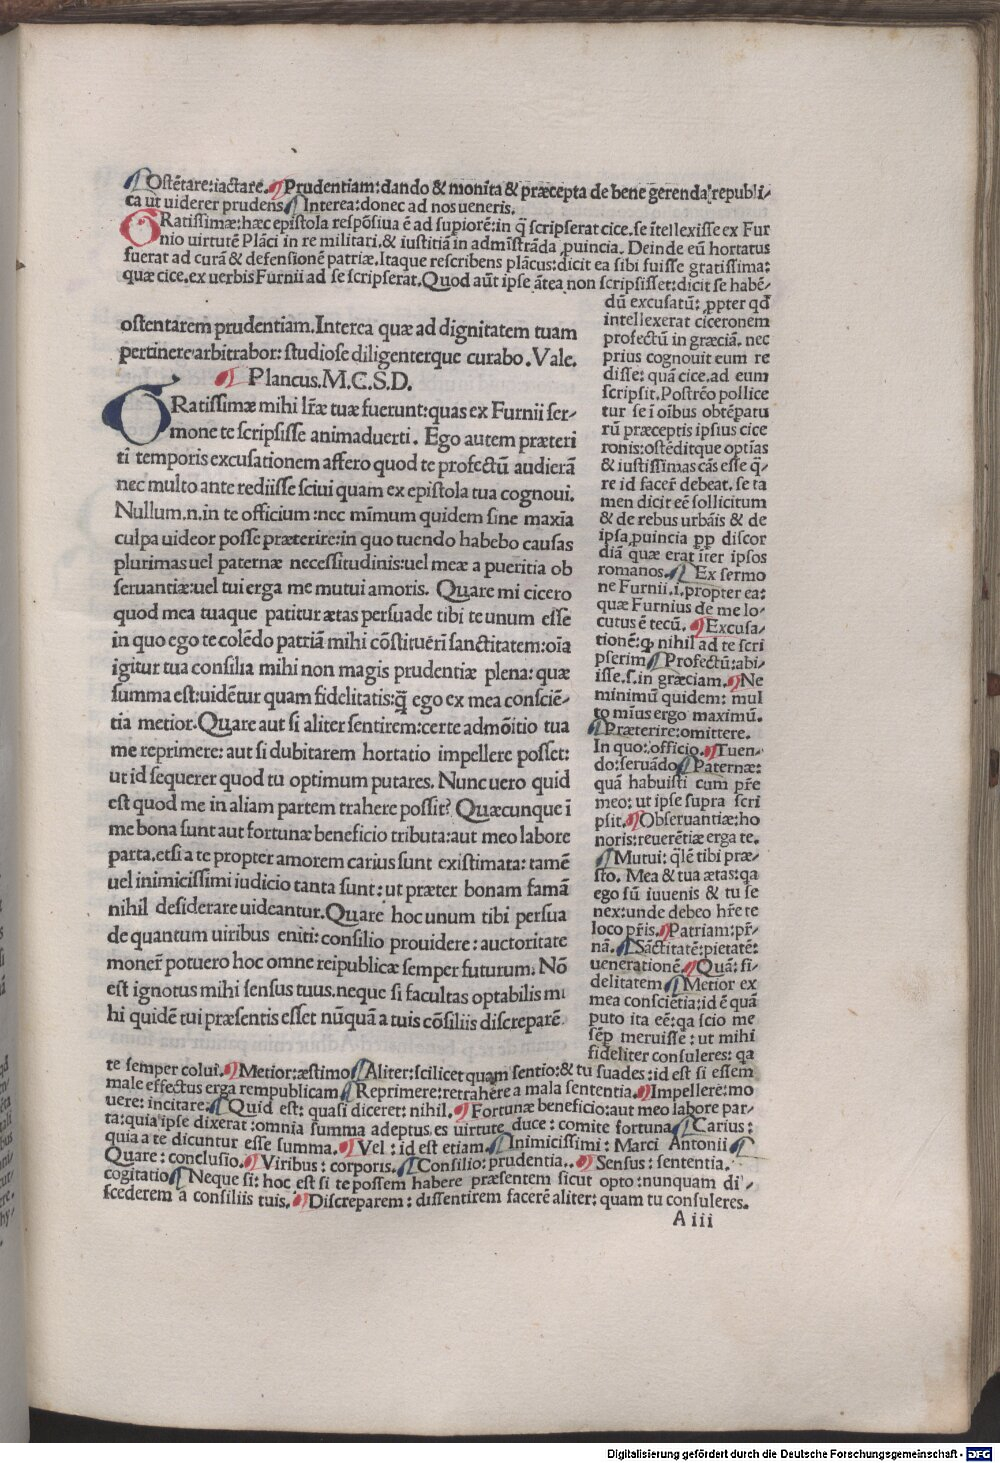 Ostētare:iactare.¶Prudentiam:dando & monita & præcepta de bene gerenda republi/
ca ut uiderer prudens¶Interea:donec ad nos ueneris.
GRatissimæ:hæc epistola respōsiua ē ad supiorē:in q̄ scripserat cice.se ītellexisse ex Fur
nio uirtutē Plāci in re militari,& iustitiā in admīstrāda ꝓuincia. Deinde eū hortatus
fuerat ad curā & defensionē patriæ. Itaque rescribens plācus:dicit ea sibi fuisse gratissima:
quæ cice.ex uerbis Furnii ad se scripserat. Quod aūt ipse ātea non scripsisset:dicit se habē/
dū excusatū: ꝓpter qđ
intellexerat ciceronem
profectū in græciā. nec
prius cognouit eum re
disse: quā cice.ad eum
scripsit. Postrēo pollice
tur se ī oībus obtēpatu
rū præceptis ipsius cice
ronis:ostēditque optīas
& iustissimas cās esse q̄/
re id facer̄ debeat. se ta
men dicit eē sollicitum
& de rebus urbāis & de
ipsa ꝓuincia ꝑp discor
diā quæ erat iter ipsos
romanos.¶Ex sermo
ne Furnii.i.propter ea:
quæ Furnius de me lo/
cutus ē tecū.¶Excusa/
tionē:ꝙ nihil ad te scri
pserim¶Profectū:abi/
isse.s.in græciam.¶Ne
minimū quidem: mul
to mīus ergo maximū.
¶Præterire:omittere.
In quo:officio.¶Tuen/
do:seruādo¶Paternæ:
quā habuisti cum pr̄e
meo: ut ipse supra scri
psit.¶Obseruantiæ:ho
noris:reuerētiæ erga te.
¶Mutui: q̄lē tibi præ/
sto. Mea & tua ætas:qa
ego sū iuuenis & tu se
nex:unde debeo hr̄e te
loco pr̄is.¶Patriam:pr̄/
nā.¶Sāctitatē:pietatē:
uenerationē.¶Quā: fi/
delitatem¶Metior ex
mea consciētia:id ē quā
puto ita eē:qa scio me
sēp meruisse: ut mihi
fideliter consuleres: qa
ostentarem prudentiam.Interea quæ ad dignitatem tuam
pertinere arbitrabor: studiose diligenterque curabo. Vale.
¶ Plancus.M.C.S.D.
GRatissimæ mihi lr̄æ tuæ fuerunt:quas ex Furnii ser/
mone te scripsisse animaduerti. Ego autem præteri
ti temporis excusationem affero quod te profectū audierā
nec multo ante rediisse sciui quam ex epistola tua cognoui.
Nullum.n.in te officium:nec mīmum quidem sine maxīa
culpa uideor posse præterire:in quo tuendo habebo causas
plurimas uel paternæ necessitudinis:uel meæ a pueritia ob
seruantiæ:uel tui erga me mutui amoris. Quare mi cicero
quod mea tuaque patitur ætas persuade tibi te unum esse
in quo ego te colēdo patriā mihi cōstituerī sanctitatem:oīa
igitur tua consilia mihi non magis prudentiæ plena: quæ
summa est:uidētur quam fidelitatis:q̄ ego ex mea consciē/
tia metior.Quare aut si aliter sentirem:certe admōitio tua
me reprimere: aut si dubitarem hortatio impellere posset:
ut id sequerer quod tu optimum putares. Nunc uero quid
est quod me in aliam partem trahere possit? Quæcunque ī
me bona sunt aut fortunæ beneficio tributa:aut meo labore
parta.etsi a te propter amorem carius sunt existimata: tamē
uel inimicissimi iudicio tanta sunt: ut præter bonam famā
nihil desiderare uideantur.Quare hoc unum tibi persua
de quantum uiribus eniti: consilio prouidere: auctoritate
moner̄ potuero hoc omne reipublicæ semper futurum. Nō
est ignotus mihi sensus tuus.neque si facultas optabilis mi
hi quidē tui præsentis esset nūquā a tuis cōsiliis discreparē
te semper colui.¶Metior:æstimo¶Aliter:scilicet quam sentio:& tu suades:id est si essem
male effectus erga rempublicam¶Reprimere:retrahere a mala sententia.¶Impellere:mo
uere: incitare.¶Quid est: quasi diceret: nihil.¶Fortunæ beneficio:aut meo labore par/
ta:quia ipse dixerat:omnia summa adeptus es uirtute duce: comite fortuna¶Carius:
quia a te dicuntur esse summa.¶Vel: id est etiam.¶Inimicissimi: Marci Antonii¶
Quare: conclusio.¶Viribus: corporis.¶Consilio: prudentia.¶Sensus: sententia.
cogitatio¶Neque si: hoc est si te possem habere præsentem sicut opto:nunquam di/
scederem a consiliis tuis.¶Discreparem: dissentirem facerē aliter: quam tu consuleres.
A iii
Digitalisierung gefördert durch die Deutsche Forschungsgemeinschaft - DFG